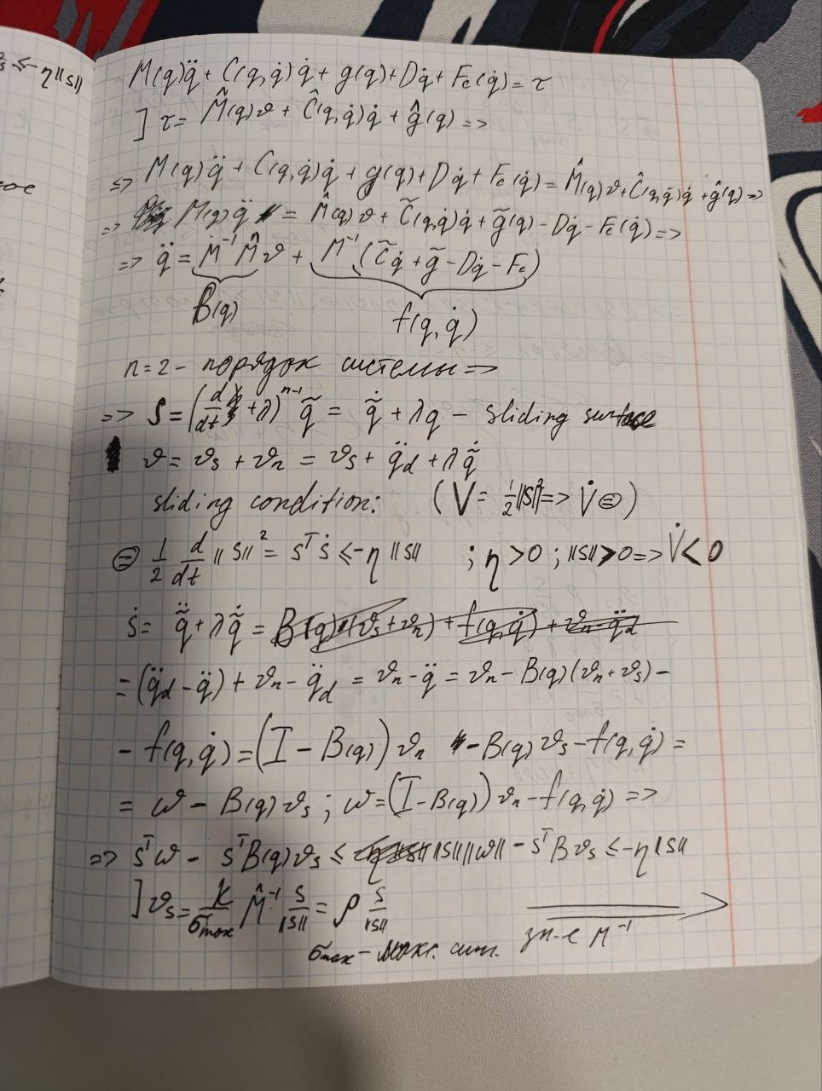 ≤ -η||s||
M(q)q̈ + C(q,q̇)q̇ + g(q) + Dq̇ + F_c(q̇) = τ
] τ = M̂(q)ϑ + Ĉ(q,q̇)q̇ + ĝ(q) =>
=> M(q)q̈ + C(q,q̇)q̇ + g(q) + Dq̇ + F_c(q̇) = M̂(q)ϑ + Ĉ(q,q̇)q̇ + ĝ(q) =>
=> M(q)q̈ = M̂(q)ϑ + C̃(q,q̇)q̇ + g̃(q) - Dq̇ - F_c(q̇) =>
=> q̈ = M⁻¹M̂ϑ + M⁻¹(C̃q̇ + g̃ - Dq̇ - F_c)
B(q) f(q,q̇)
n=2 - порядок системы =>
=> S = (d/dt + λ)ⁿ⁻¹ q̃ = q̃̇ + λq - sliding surface
ϑ = ϑ_s + ϑ_n = ϑ_s + q̈_d + λq̃̇
sliding condition: (V = ½||s||² => V̇ ⊜)
⊜ ½ d/dt ||s||² = sᵀṡ ≤ -η||s|| ; η > 0 ; ||s|| > 0 => V̇ < 0
ṡ = q̃̈ + λq̃̇ = B(q)(ϑ_s + ϑ_n) + f(q,q̇) + ϑ_n - q̈_d
= (q̈_d - q̈) + ϑ_n - q̈_d = ϑ_n - q̈ = ϑ_n - B(q)(ϑ_n + ϑ_s) -
- f(q,q̇) = (I - B(q))ϑ_n - B(q)ϑ_s - f(q,q̇) =
= ω - B(q)ϑ_s ; ω = (I - B(q))ϑ_n - f(q,q̇) =>
=> sᵀω - sᵀB(q)ϑ_s ≤ ||s||||ω|| - sᵀBϑ_s ≤ -η||s||
] ϑ_s = k/σ_max M̂⁻¹ s/||s|| = ρ s/||s||
σ_max - макс. синг. зн-е M⁻¹